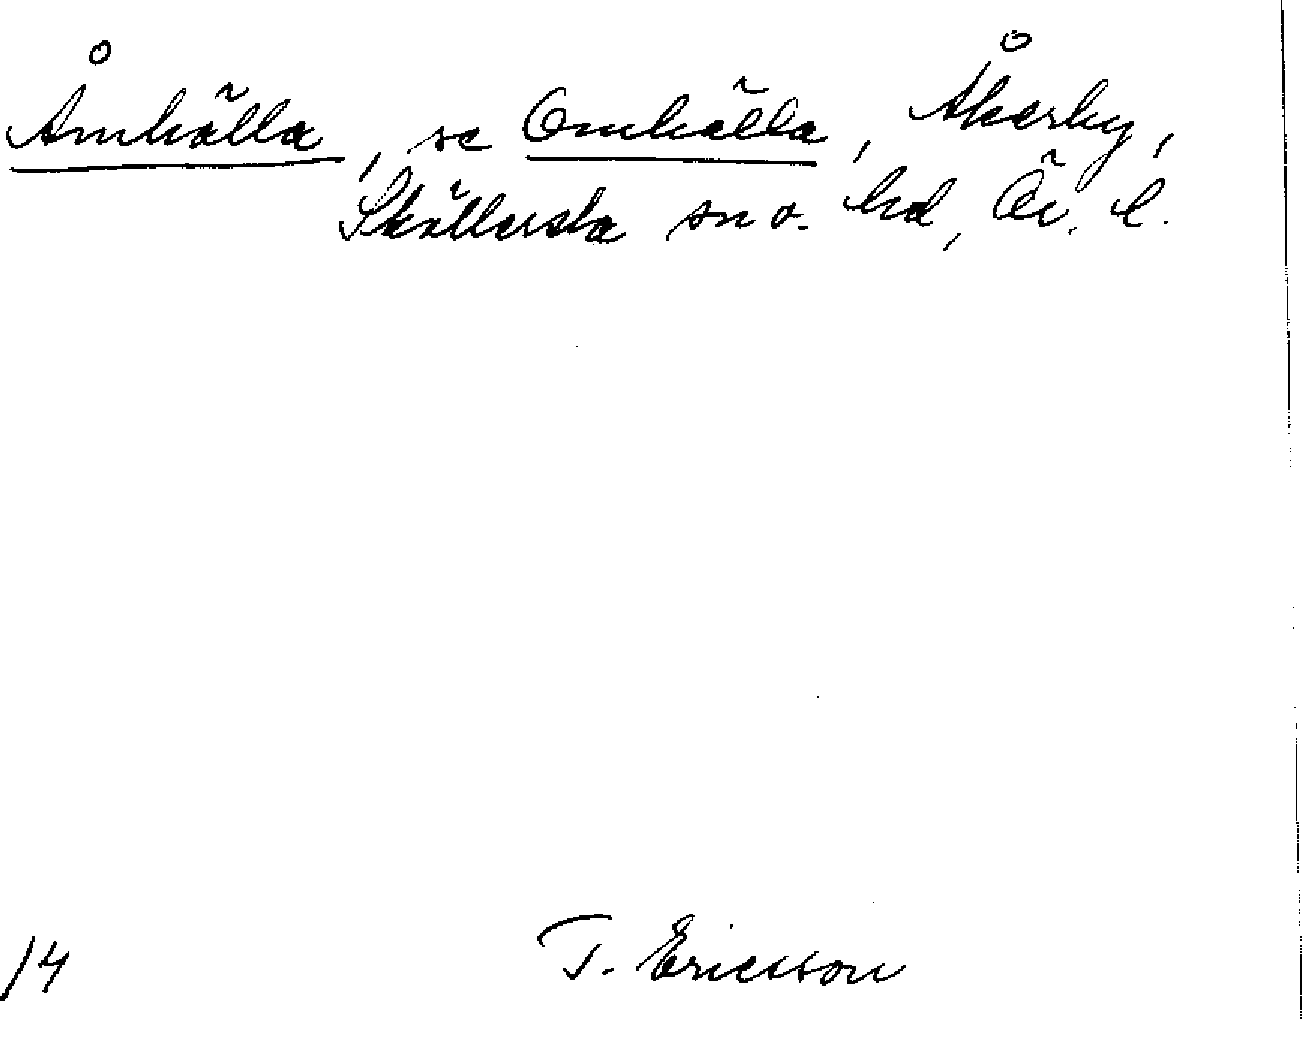 Åmhälla, se Omhälla, Åkerby,
Skällersta sn o. hd, Ör. l.
/4
T. Ericsson